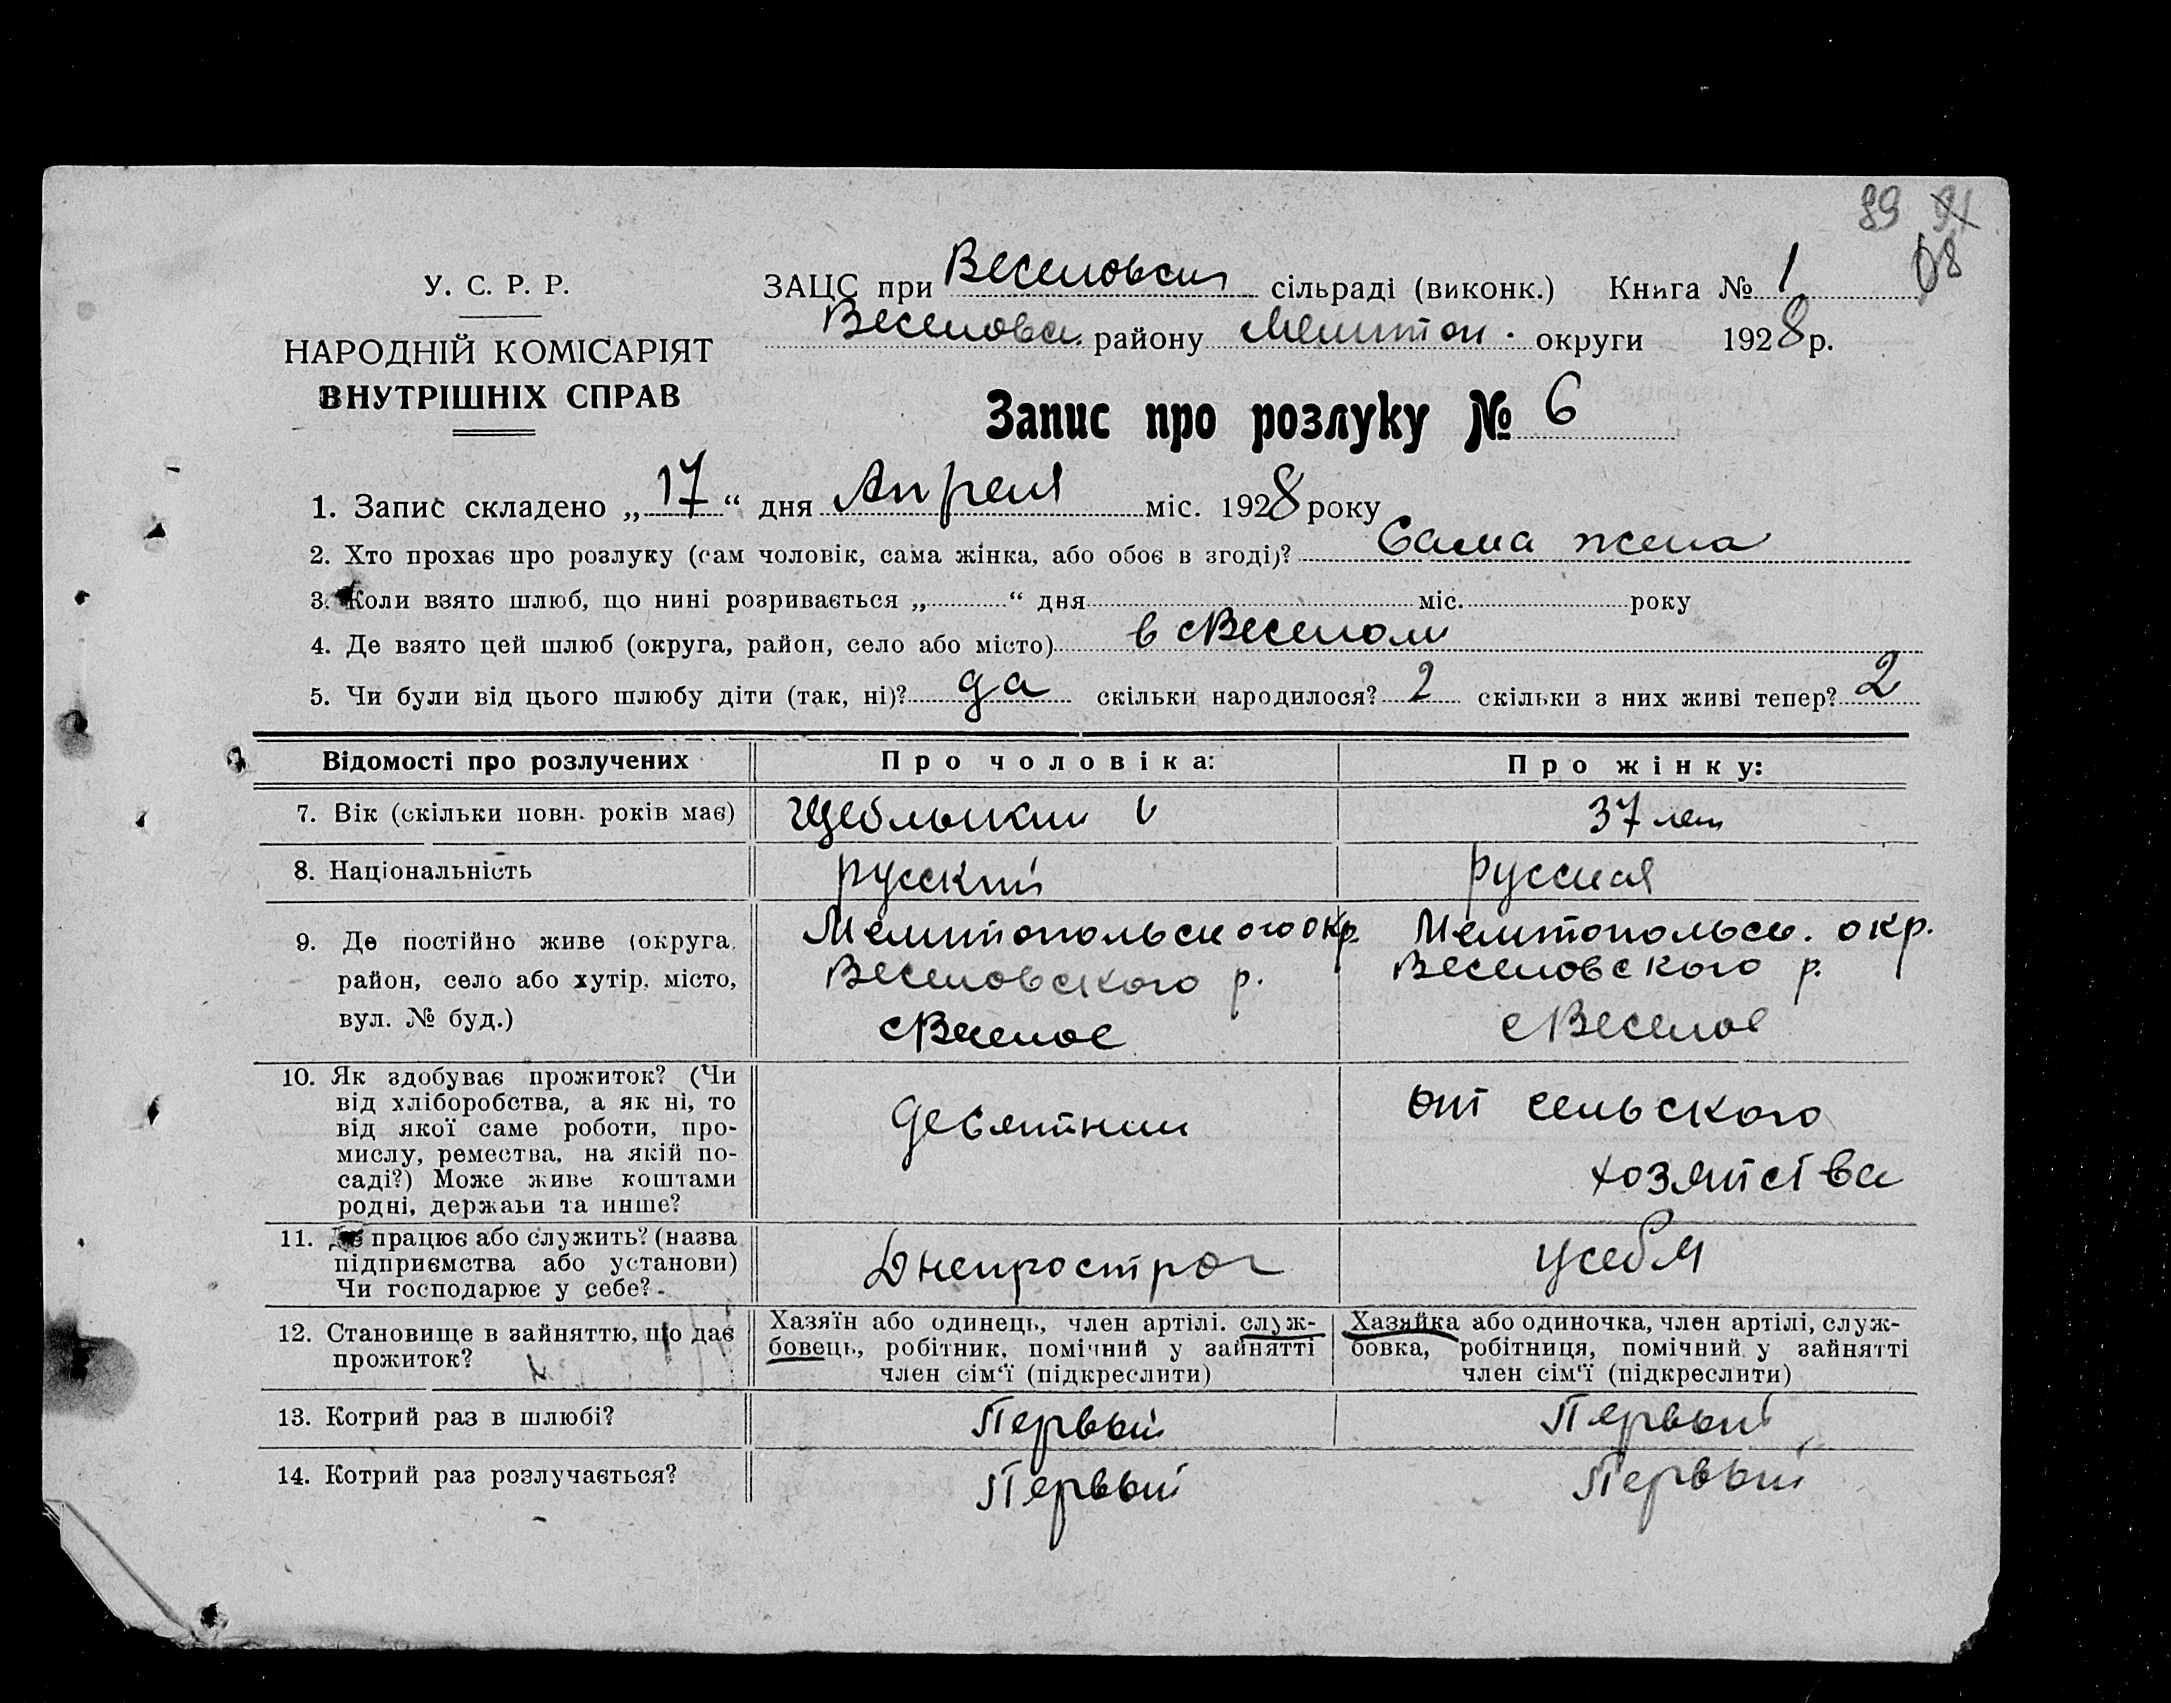 89 91
68
У. С. Р. Р.
НАРОДНІЙ КОМІСАРІЯТ
ВНУТРІШНІХ СПРАВ
ЗАЦС при Веселовск сільраді (виконк.) Книга № 1
Веселовск. району Мелитоп. округи 1928 р.
Запис про розлуку № 6
1. Запис складено „17“ дня Апреля міс. 1928 року
2. Хто прохає про розлуку (сам чоловік, сама жінка, або обоє в згоді)? Сама жена
3. Коли взято шлюб, що нині розривається „ “ дня міс. року
4. Де взято цей шлюб (округа, район, село або місто) в с Веселом
5. Чи були від цього шлюбу діти (так, ні)? да скільки народилося? 2 скільки з них живі тепер? 2
Відомості про розлучених
Про чоловіка:
Про жінку:
7. Вік (скільки повн. років має)
37 лет
8. Національність
русский
русская
9. Де постійно живе (округа,
район, село або хутір, місто,
вул. № буд.)
Мелитопольского окр.
Веселовского р.
с Веселое
Мелитопольск. окр.
Веселовского р.
с Веселое
10. Як здобуває прожиток? (Чи
від хліборобства, а як ні, то
від якої саме роботи, про-
мислу, ремества, на якій по-
саді?) Може живе коштами
родні, держави та инше?
десятник
от сельского
хозяйства
11. Де працює або служить? (назва
підприємства або установи)
Чи господарює у себе?
Днепрострое
у себя
12. Становище в зайняттю, що дає
прожиток?
Хазяїн або одинець, член артілі, служ-
бовець, робітник, помічний у зайнятті
член сім'ї (підкреслити)
Хазяйка або одиночка, член артілі, служ-
бовка, робітниця, помічний у зайнятті
член сім'ї (підкреслити)
13. Котрий раз в шлюбі?
Первый
Первый
14. Котрий раз розлучається?
Первый
Первый